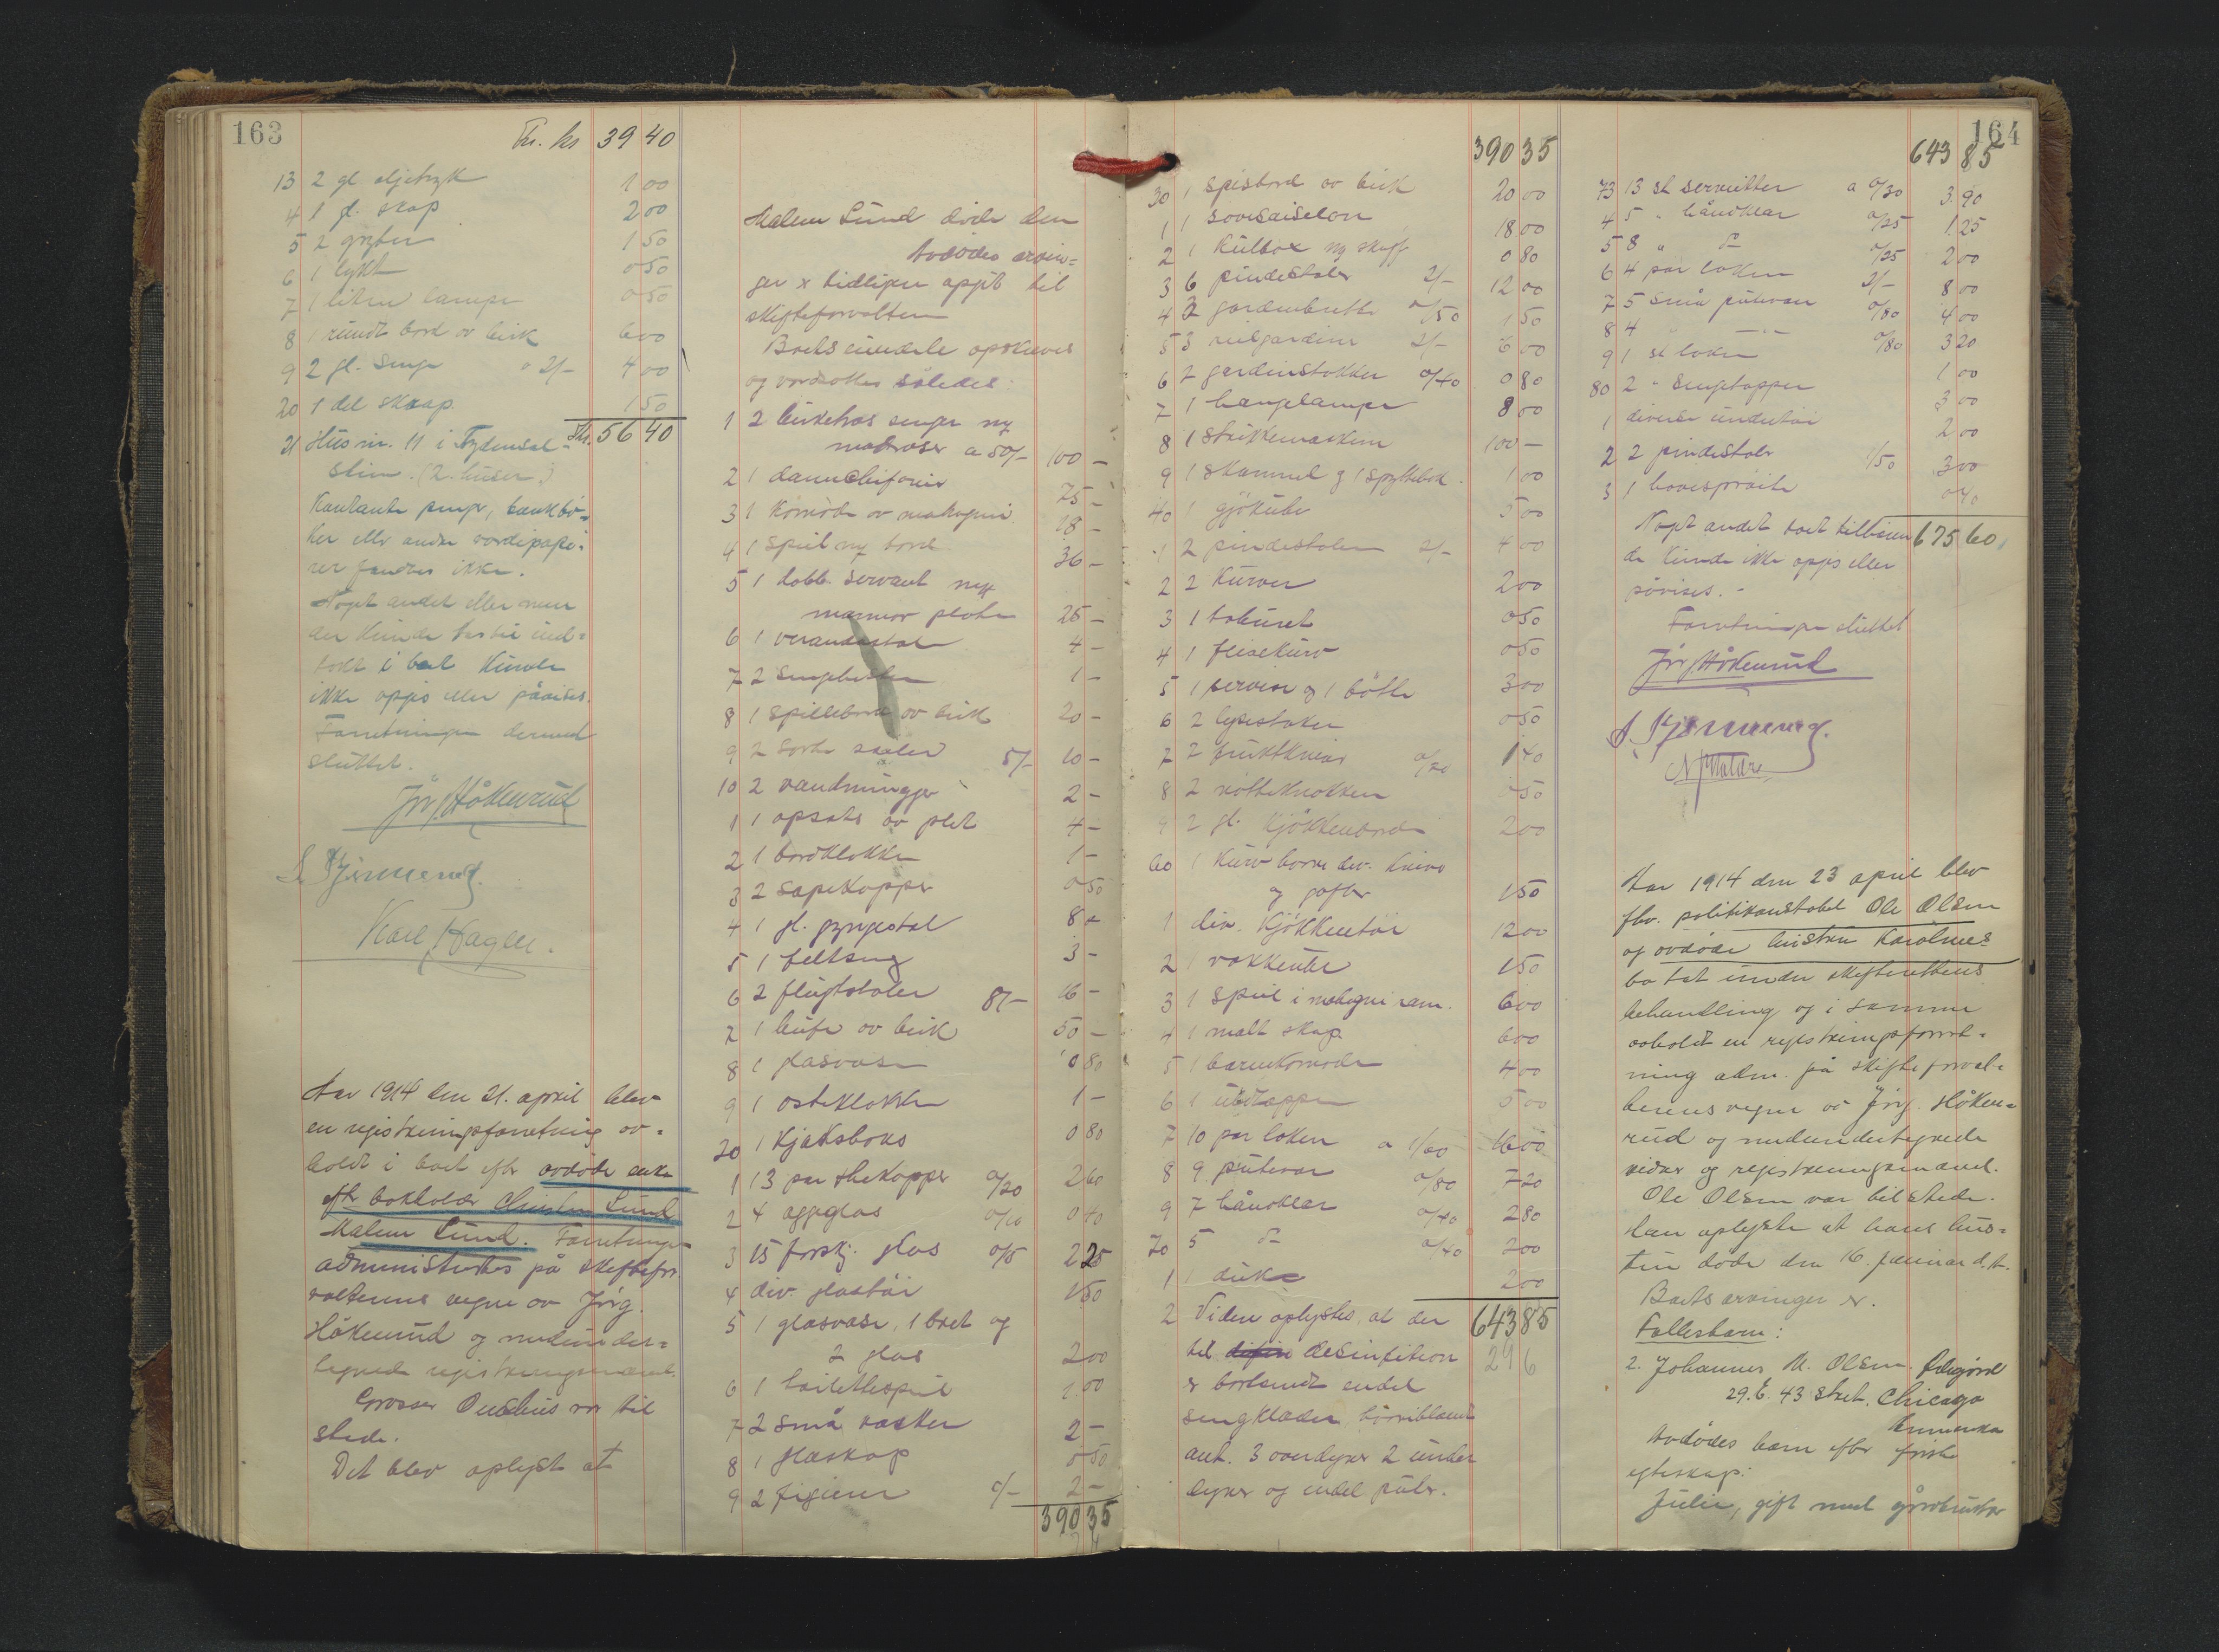 163
Tr. kr 39 40
13 2 gl. oljetryk 1 00
4 1 gl. skap 2 00
5 2 gryter 1 50
6 1 lykt 0 50
7 1 liten lampe 0 50
8 1 rundt bord av birk 6 00
9 2 gl. senge a 2/- 4 00
20 1 del skrap 1 50
21 Hus nr. 11 i 56 40
(2. huser.)
Kontante penger, bankbø-
ker eller andre værdipapi-
rer fandtes ikke.
Noget andet eller mere
der kunde
i boet kunde
ikke opgis eller påvises.
Forretningen dermed
sluttet.
Jørg. Håkenrud
Karl Hagen.
Aar 1914 den 21. april blev
en registreringsforretning av-
holdt i boet efter avdøde enke
eftr bokholder Christen Lund
Malene Lund. Forretningen
administrertes på skiftefor-
valterens vegne av Jørg.
Håkenrud og medunder-
tegnede registreringsmænd.
Grosser var til
stede.
Det blev oplyst at
Malene Lund døde den
Avdødes arvin-
ger er tidligere opgit til
skifteforvalteren
Boets eiendele opskreves
og værdsattes således:
1 2 birketræs senger m/
matraser a 50/- 100 -
2 1 damechifonier 75 -
3 1 komode av mahogni 18 -
4 1 speil m/ bord 36 -
5 1 dobb. servant m/
marmor plate 25 -
6 1 verandastol 4 -
7 2 1 -
8 1 spillebord av birk 20 -
9 2 sorte søiler 5/- 10 -
10 2 vandmugger 2 -
1 1 opsats av plet 4 -
2 1 bordklokke 1 -
3 2 sapekopper 0 50
4 1 gl. gyngestol 8 -
5 1 feltseng 3 -
6 2 fløistoler 8/- 16 -
7 1 bufe av birk 50 -
8 1 glasvase 0 80
9 1 osteklokke 1 -
20 1 kjeksboks 0 80
1 13 par thekopper 0/20 2 60
2 4 eggeglas 0/10 0 40
3 15 forskj. glas 0/15 2 25
4 div. glastøi 1 50
5 1 glasvase, 1 bret og
2 glas 2 00
6 1 toiletspeil 1 00
7 2 små vasker 2 -
8 1 glaskop 0 50
9 2 figurer 2 -
390 35
390 35
30 1 spisebord av birk 20 00
1 1 18 00
2 1 kulbox m/ skuff 0 80
3 6 pindestoler 2/- 12 00
4 3 gardinbrett 0/50 1 50
5 3 rulgardiner 2/- 6 00
6 2 gardinstokker 0/40 0 80
7 1 hængelampe 8 00
8 1 strikkemaskin 100 -
9 1 skammel og 1 spyttebak 1 00
40 1 gjøkuhr 5 00
1 2 pindestoler 2/- 4 00
2 2 kurver 2 00
3 1 taburet 0 50
4 1 fliskurv 0 50
5 1 servise og 1 bøtte 3 00
6 2 lysestaker 0 50
7 2 fruktkniver 1 40
8 2 nøtteknækker 50
9 2 gl. kjøkkenbord 2 00
60 1 kurv div. knive
og gafler 1 50
1 div. kjøkkentøi 12 00
2 1 vækkeuhr 1 50
3 1 speil i mahogni ram. 6 00
4 1 malt skap 6 00
5 1 barnekomode 4 00
6 1 uldteppe 5 00
7 10 par laken a 1/60 16 00
8 9 putevar 0/80 7 20
9 7 håndklær 0/40 2 80
70 5 do 0/40 2 00
1 1 duk 2 00
2 Videre oplystes, at der 643 85
til desinfition 296
er bortsendt endel
sengklæder hvoriblandt
ant. 3 overdyner 2 under
dyner og endel puter.
164
643 85
73 13 st servietter a 0/30 3 90
4 5 " håndklær 0/25 1 25
5 8 " do 0/25 2 00
6 4 par laken 2/- 8 00
7 5 små putevar 0/80 4 00
8 4 " -"- 0/80 3 20
9 1 st laken 1 00
80 2 " sengetepper 3 00
1 diverse undertøi 2 00
2 2 pindestoler 1/50 3 00
3 1 havesprøite 0 40
Noget andet boet tilhøren 675 60
de kunde ikke opgis eller
påvises. -
Forretningen sluttet
Jørg. Håkenrud
Aar 1914 den 23 april blev
fhv. politikonstabel Ole Olsen
og avdøde hustru Karolines
bo tat under skifterettens
behandling og i samme
avholdt en registreringsforret-
ning adm. på skifteforval-
terens vegne av Jørg. Håken-
rud og medundertegnede
vidner og registreringsmænd.
Ole Olsen var tilstede.
Han oplyste at hans hus-
tru døde den 16. januar d. a.
Boets arvinger er.
Fællesbarn:
2. Johannes M. Olsen.
29. E. 43 Street, Chicago
Amerika
Avdødes barn efter første
egteskap:
Julie, gift med